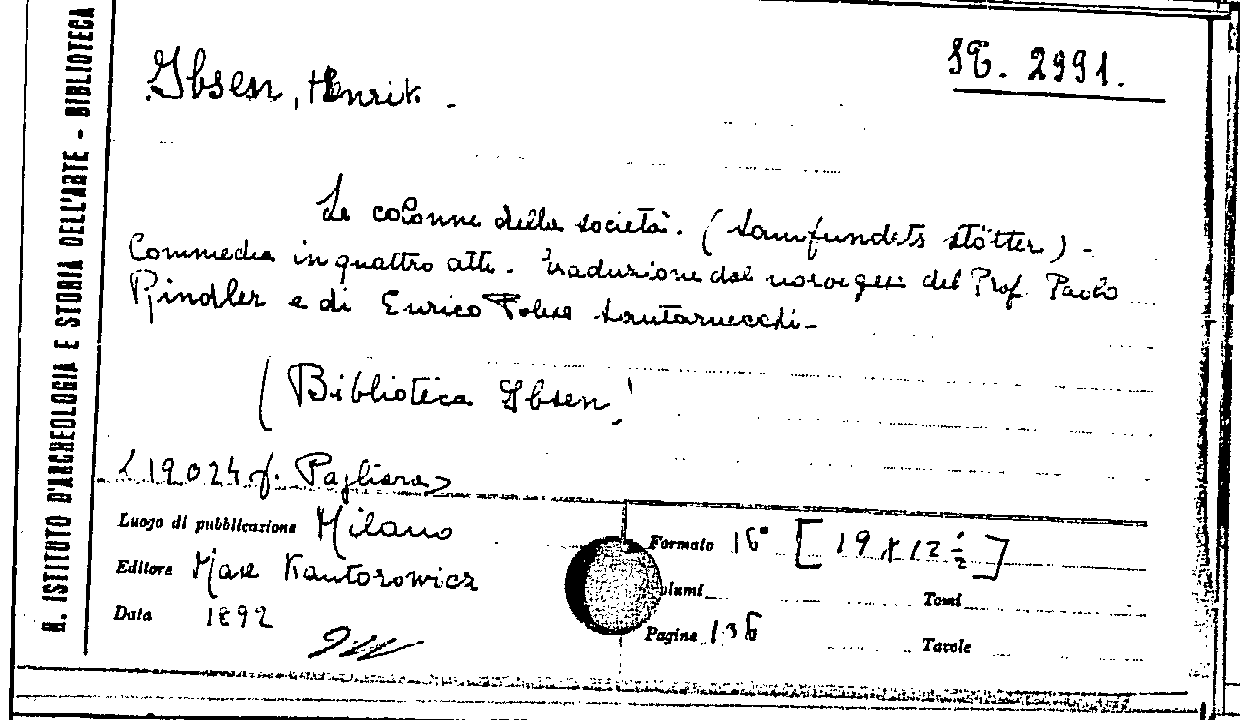 R. ISTITUTO D'ARCHEOLOGIA E STORIA DELL'ARTE - BIBLIOTECA
Ibsen, Henrik.
2991.
Le colonne della società. (Samfundets støtter) -
Commedia in quattro atti. Traduzione dal norvegese del Prof. Paolo
Rindler e di Enrico Polese Santarnecchi -
(Biblioteca Ibsen)
19024 f. Pagliara
Luogo di pubblicazione Milano
Formato 16° [19 x 12 ½]
Editore Max Kantorowicz
Volumi
Tomi
Data 1892
Pagine 136
Tavole